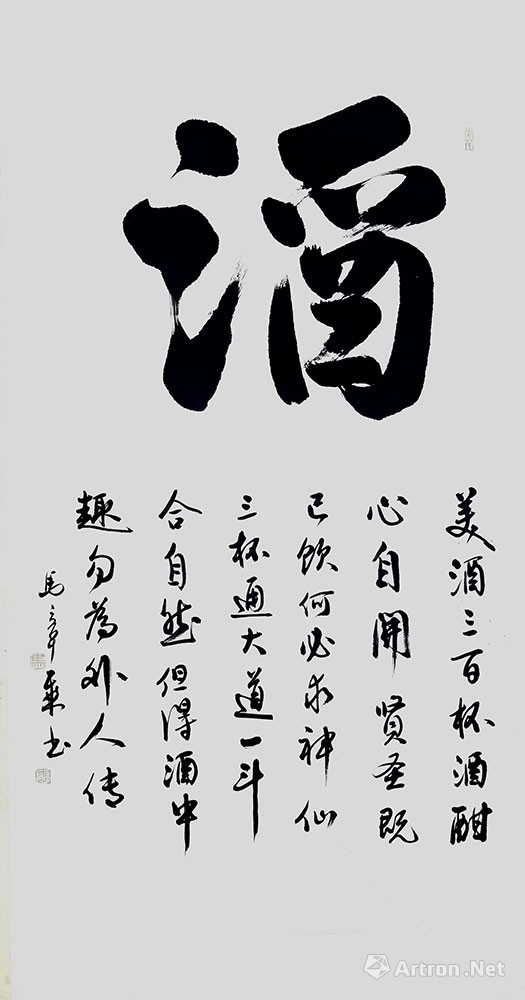 酒
美酒三百杯酒酣
心自開贤圣既
已饮何必求神仙
三杯通大道一斗
合自然但得酒中
趣勿為外人传
馬书
Artron.Net